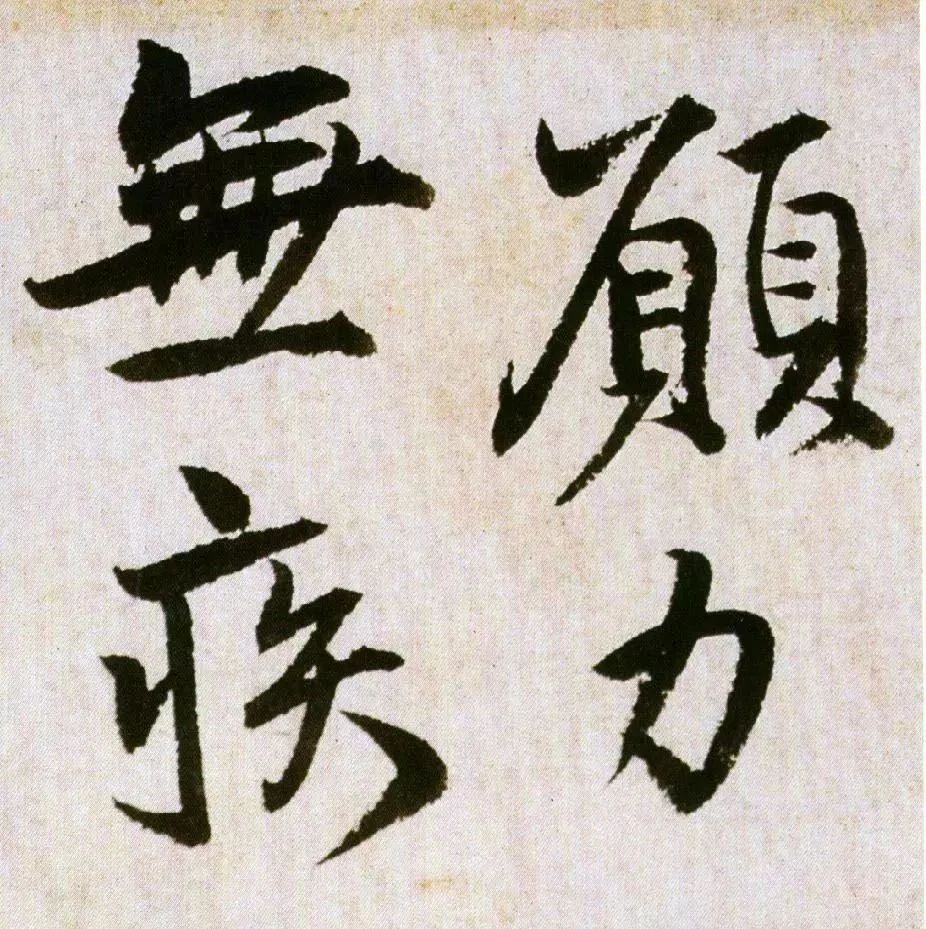 願力
無疾